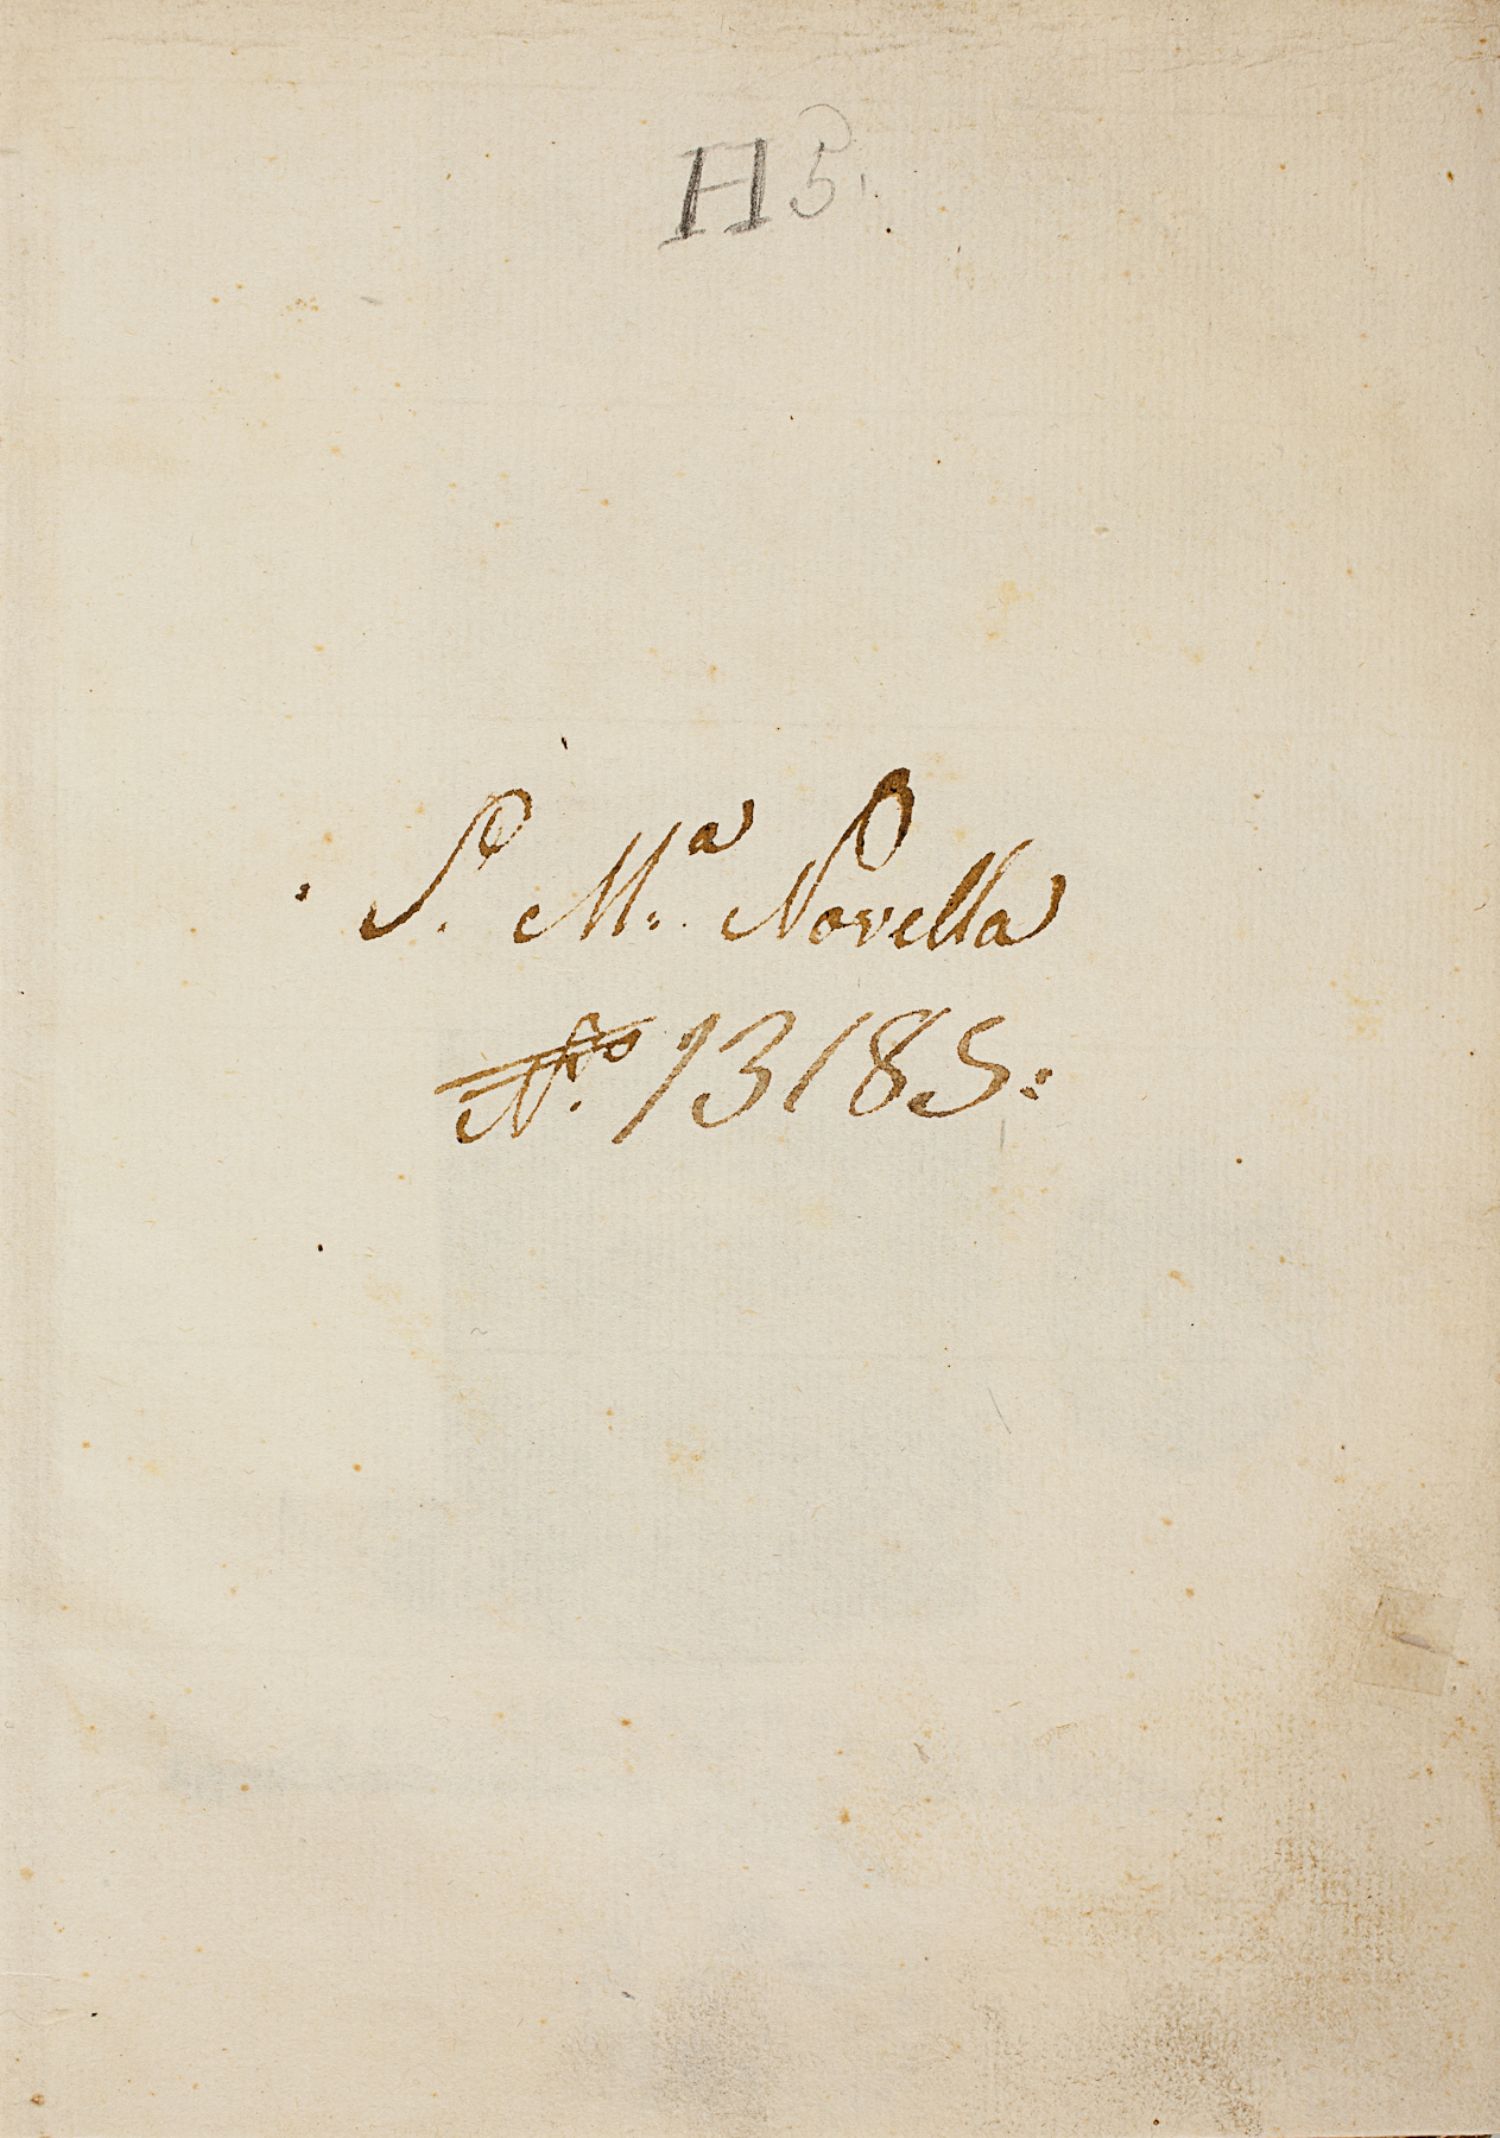 H 5.
S. Mª: Novella
Nº. 13185: